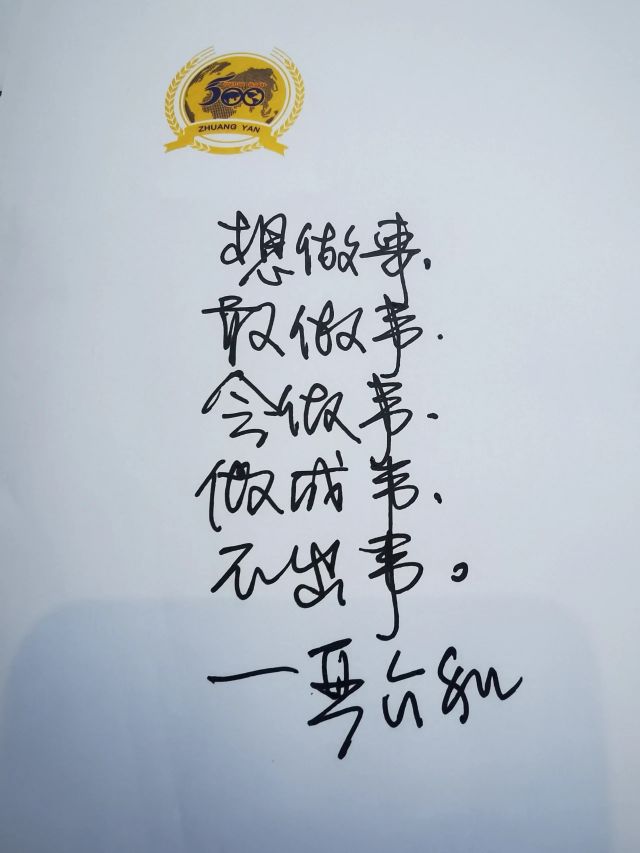 500
ZHUANG YAN
想做事.
敢做事.
会做事.
做成事.
不出事。
一